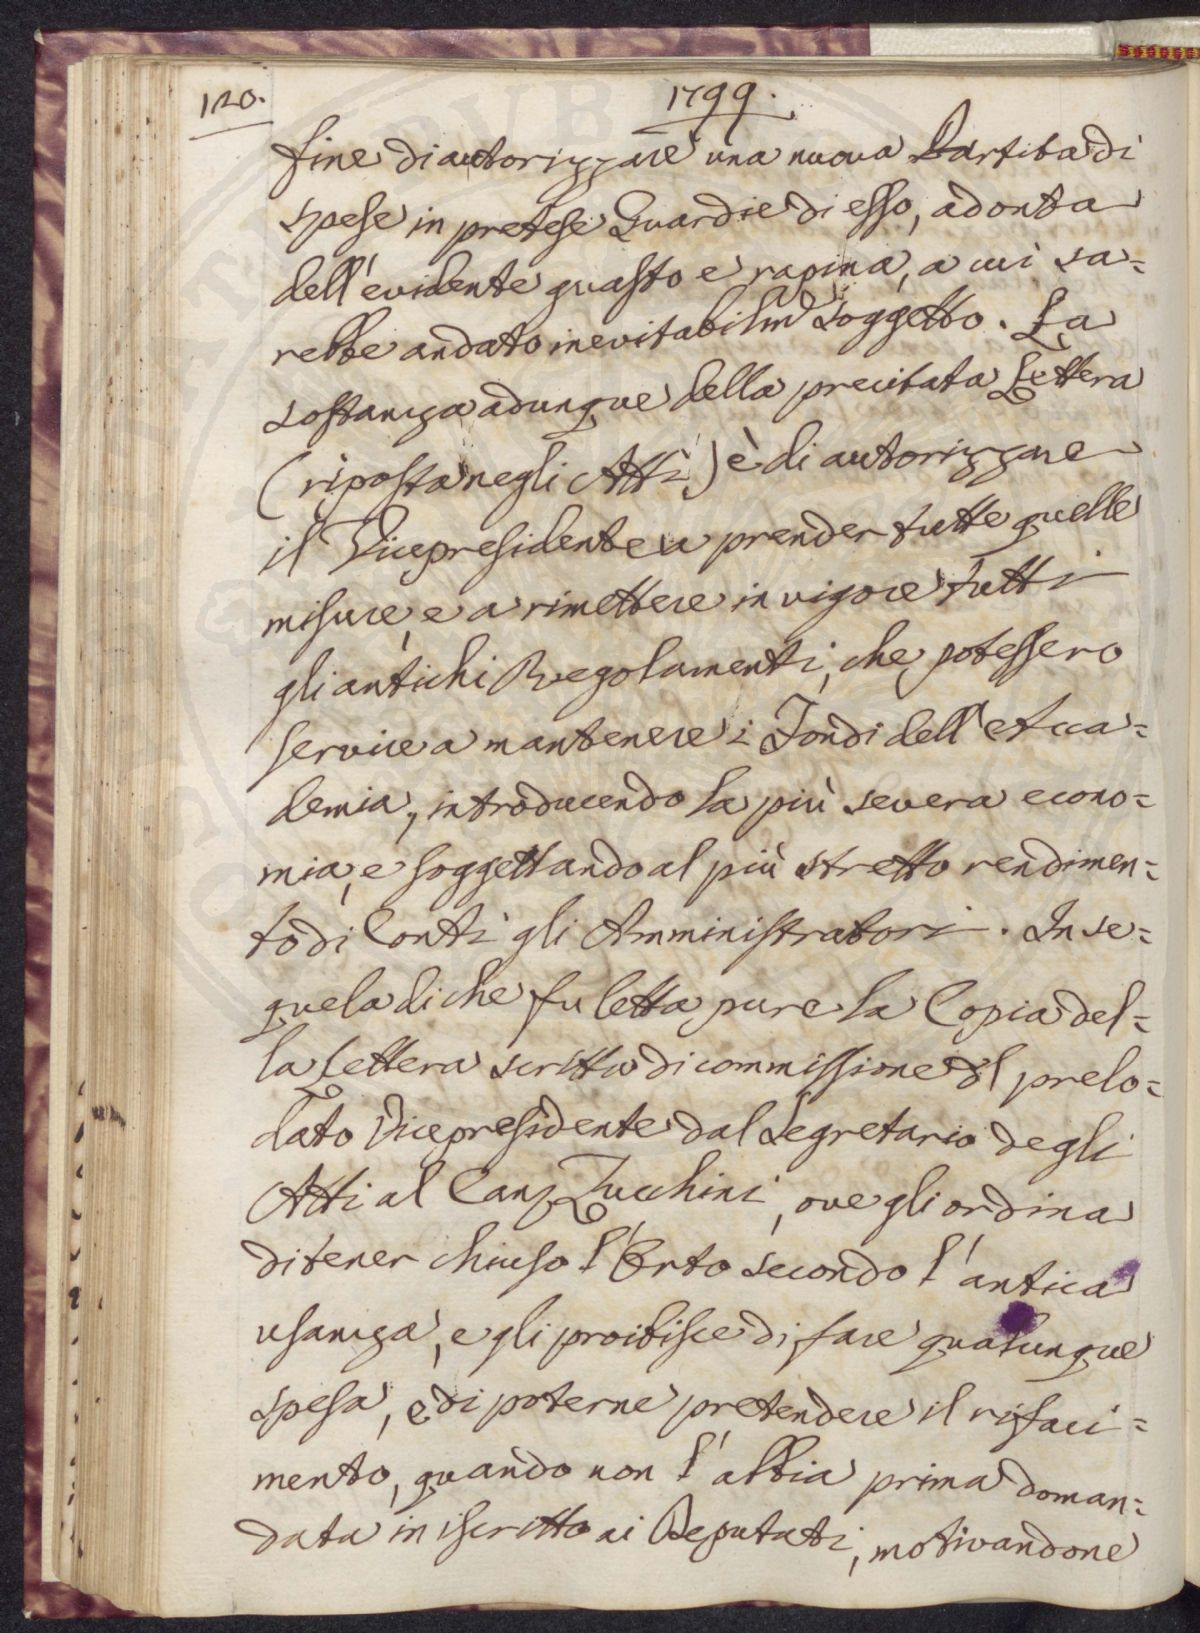 120.
1799.
fine di autorizzare una nuova Partita di
spese in pretese Guardie di esso, ad onta
dell'evidente guasto e rapina, a cui sa=
rebbe andato inevitabilmᵉ soggetto. La
sostanza adunque della precitata Lettera
(riposta negli Atti) è di autorizzare
il Vicepresidente a prender tutte quelle
misure, e a rimettere in vigore tutti
gli antichi Regolamenti, che potessero
servire a mantenere i Fondi dell'Acca=
demia, introducendo la più severa econo=
mia, e soggettando al più stretto rendimen=
to di Conti gli Amministratori. In se=
quela di che fu letta pure la Copia del=
la Lettera scritta di commissione dl prelo=
dato Vicepresidente dal Segretario degli
Atti al Canz Zucchini, ove gli ordina
di tener chiuso l'Orto secondo l'antica
usanza, e gli proibisce di fare qualunque
spesa, e di poterne pretendere il rifaci=
mento, quando non l'abbia prima doman=
data in iscritto ai Deputati, motivandone